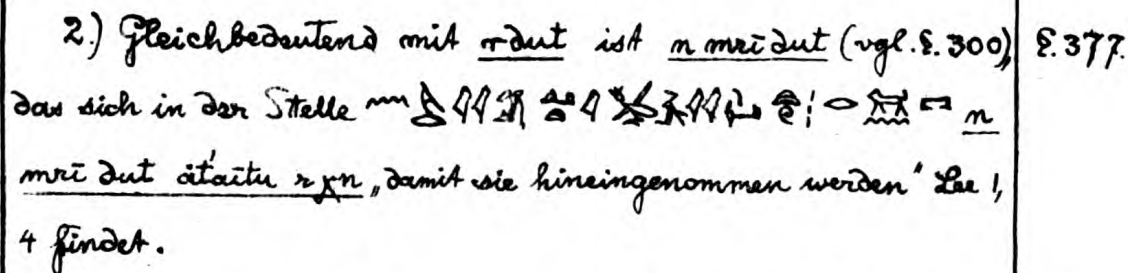 2.) Gleichbedeutend mit rdut ist n mrīdut (vgl. §. 300), §. 377.
das sich in der Stelle n
mrī dut át'aítu r χn „damit sie hineingenommen werden" Lee 1,
4 findet.